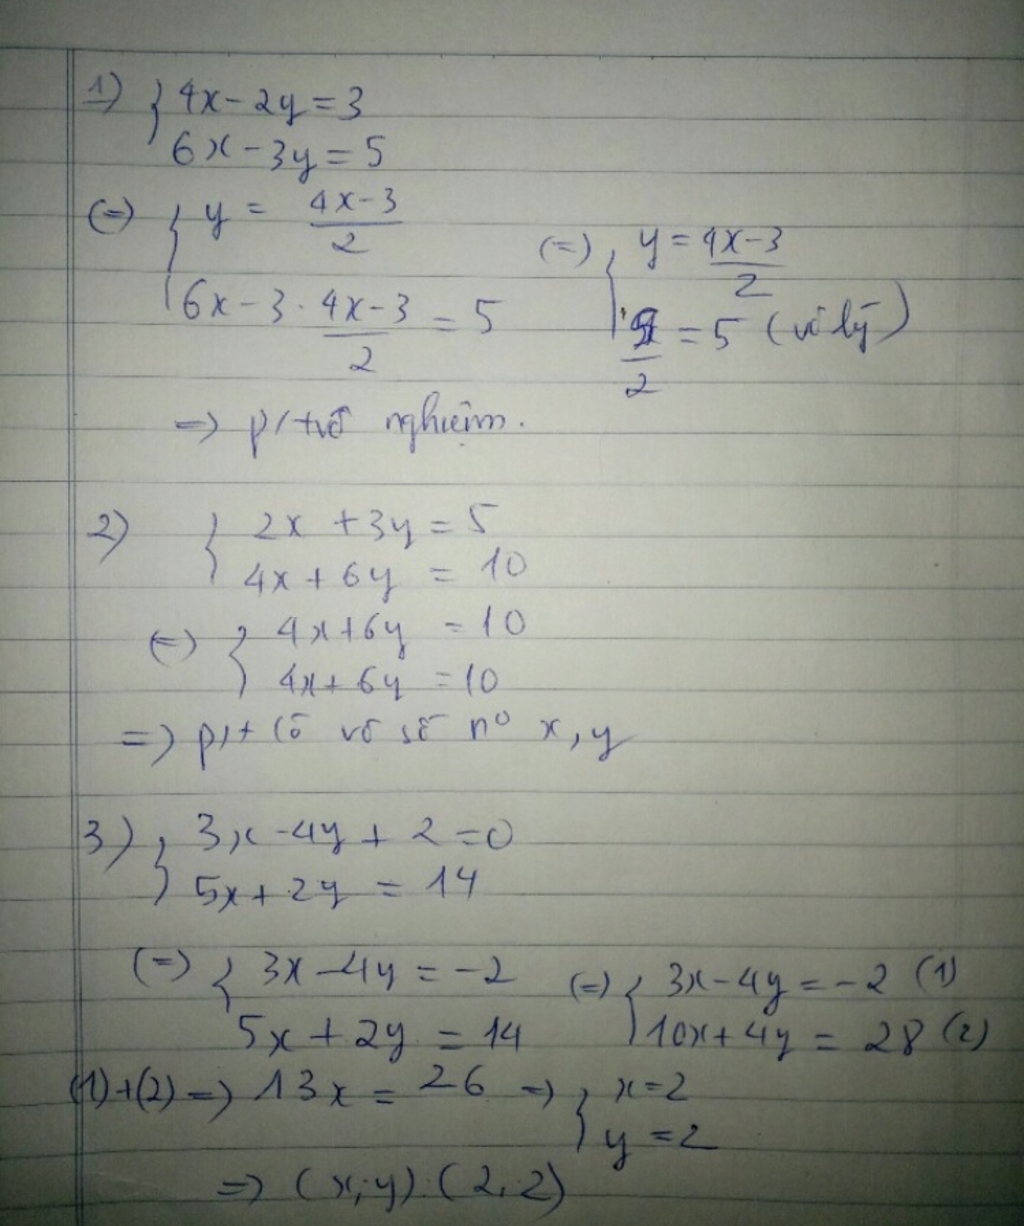 1) { 4x - 2y = 3
6x - 3y = 5
(=) { y = (4x-3)/2
6x - 3 . (4x-3)/2 = 5
(=) { y = (4x-3)/2
9/2 = 5 (vô lý)
=> p/t vô nghiệm.
2) { 2x + 3y = 5
4x + 6y = 10
(=) { 4x + 6y = 10
4x + 6y = 10
=> p/t có vô số n° x, y
3) { 3x - 4y + 2 = 0
5x + 2y = 14
(=) { 3x - 4y = -2
5x + 2y = 14
(=) { 3x - 4y = -2 (1)
10x + 4y = 28 (2)
(1)+(2) => 13x = 26 => { x = 2
y = 2
=> (x,y) : (2,2)